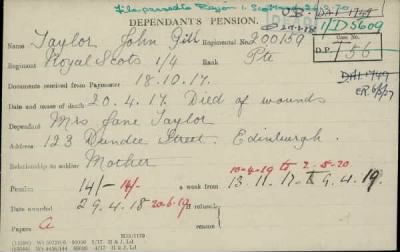 DEPENDANT'S PENSION.
1/D5609
Name Taylor John Gill Regimental No. 200159
Case No.
Regiment Royal Scots 1/4 Rank Pte
D.P. 756
Documents received from Paymaster 18.10.17.
D.A.1 1749
Date and cause of death 20.4.17. Died of wounds
Dependant Mrs Jane Taylor
Address 123 Dundee Street. Edinburgh.
Relationship to soldier Mother
10-4-19 to 2-5-20
Pension 14/- 14/- a week from 13.11.17. to 9.4.19.
Date awarded 29.4.18 20.6.19 If refused
reason
Papers A